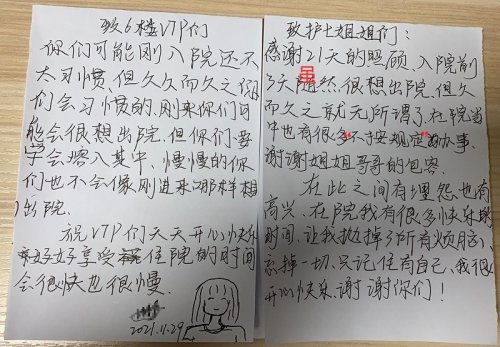 致6楼VIP们
你们可能刚入院还不
太习惯,但久久而久之你
们会习惯的.刚来你们可
能会很想出院.但你们要
学会溶入其中,慢慢的你
们也不会像刚进来那样想
出院.
祝VIP们天天开心快乐
好好享受住院的时间
会很快也很慢.
2021.11.29
致护士姐姐们:
感谢21天的照顾,入院前
3天虽然很想出院,但久
而久之就无所谓了.在院当
中也有很多不守规定办事.
谢谢姐姐哥哥的包容.
在此之间有埋怨也有
高兴.在院我有很多快乐
时间,让我抛掉了所有烦脑
忘掉一切.只记住有自己,我很
开心快乐.谢谢你们!